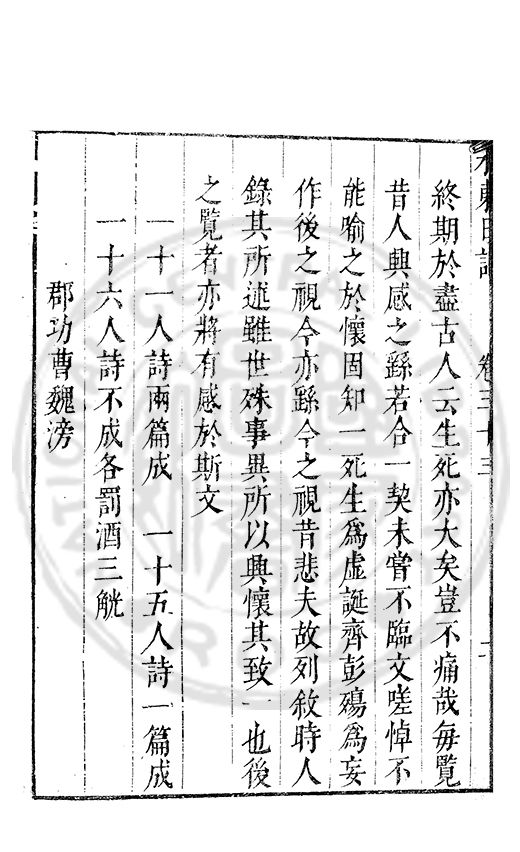 水東日記 卷三十三
終期於盡古人云生死亦大矣豈不痛哉毎覽
昔人興感之繇若合一契未嘗不臨文嗟悼不
能喻之於懷固知一死生爲虛誕齊彭殤爲妄
作後之視今亦繇今之視昔悲夫故列敘時人
錄其所述雖世殊事異所以興懷其致一也後
之覽者亦將有感於斯文
一十一人詩兩篇成 一十五人詩一篇成
一十六人詩不成各罰酒三觥
郡功曹魏滂